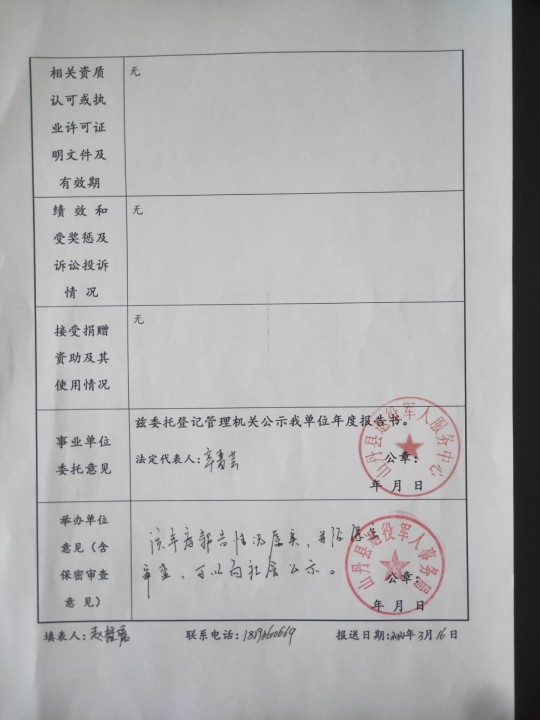 相关资质
认可或执
业许可证
明文件及
有效期
无
绩效和
受奖惩及
诉讼投诉
情况
无
接受捐赠
资助及其
使用情况
无
事业单位
委托意见
兹委托登记管理机关公示我单位年度报告书。
法定代表人：
公章：
年 月 日
山丹县退役军人服务中心
举办单位
意见（含
保密审查
意见）
该年度报告情况属实，并经保密
审查，可以向社会公示。
公章：
年 月 日
山丹县退役军人事务局
填表人：赵
联系电话：
报送日期：年3月16日